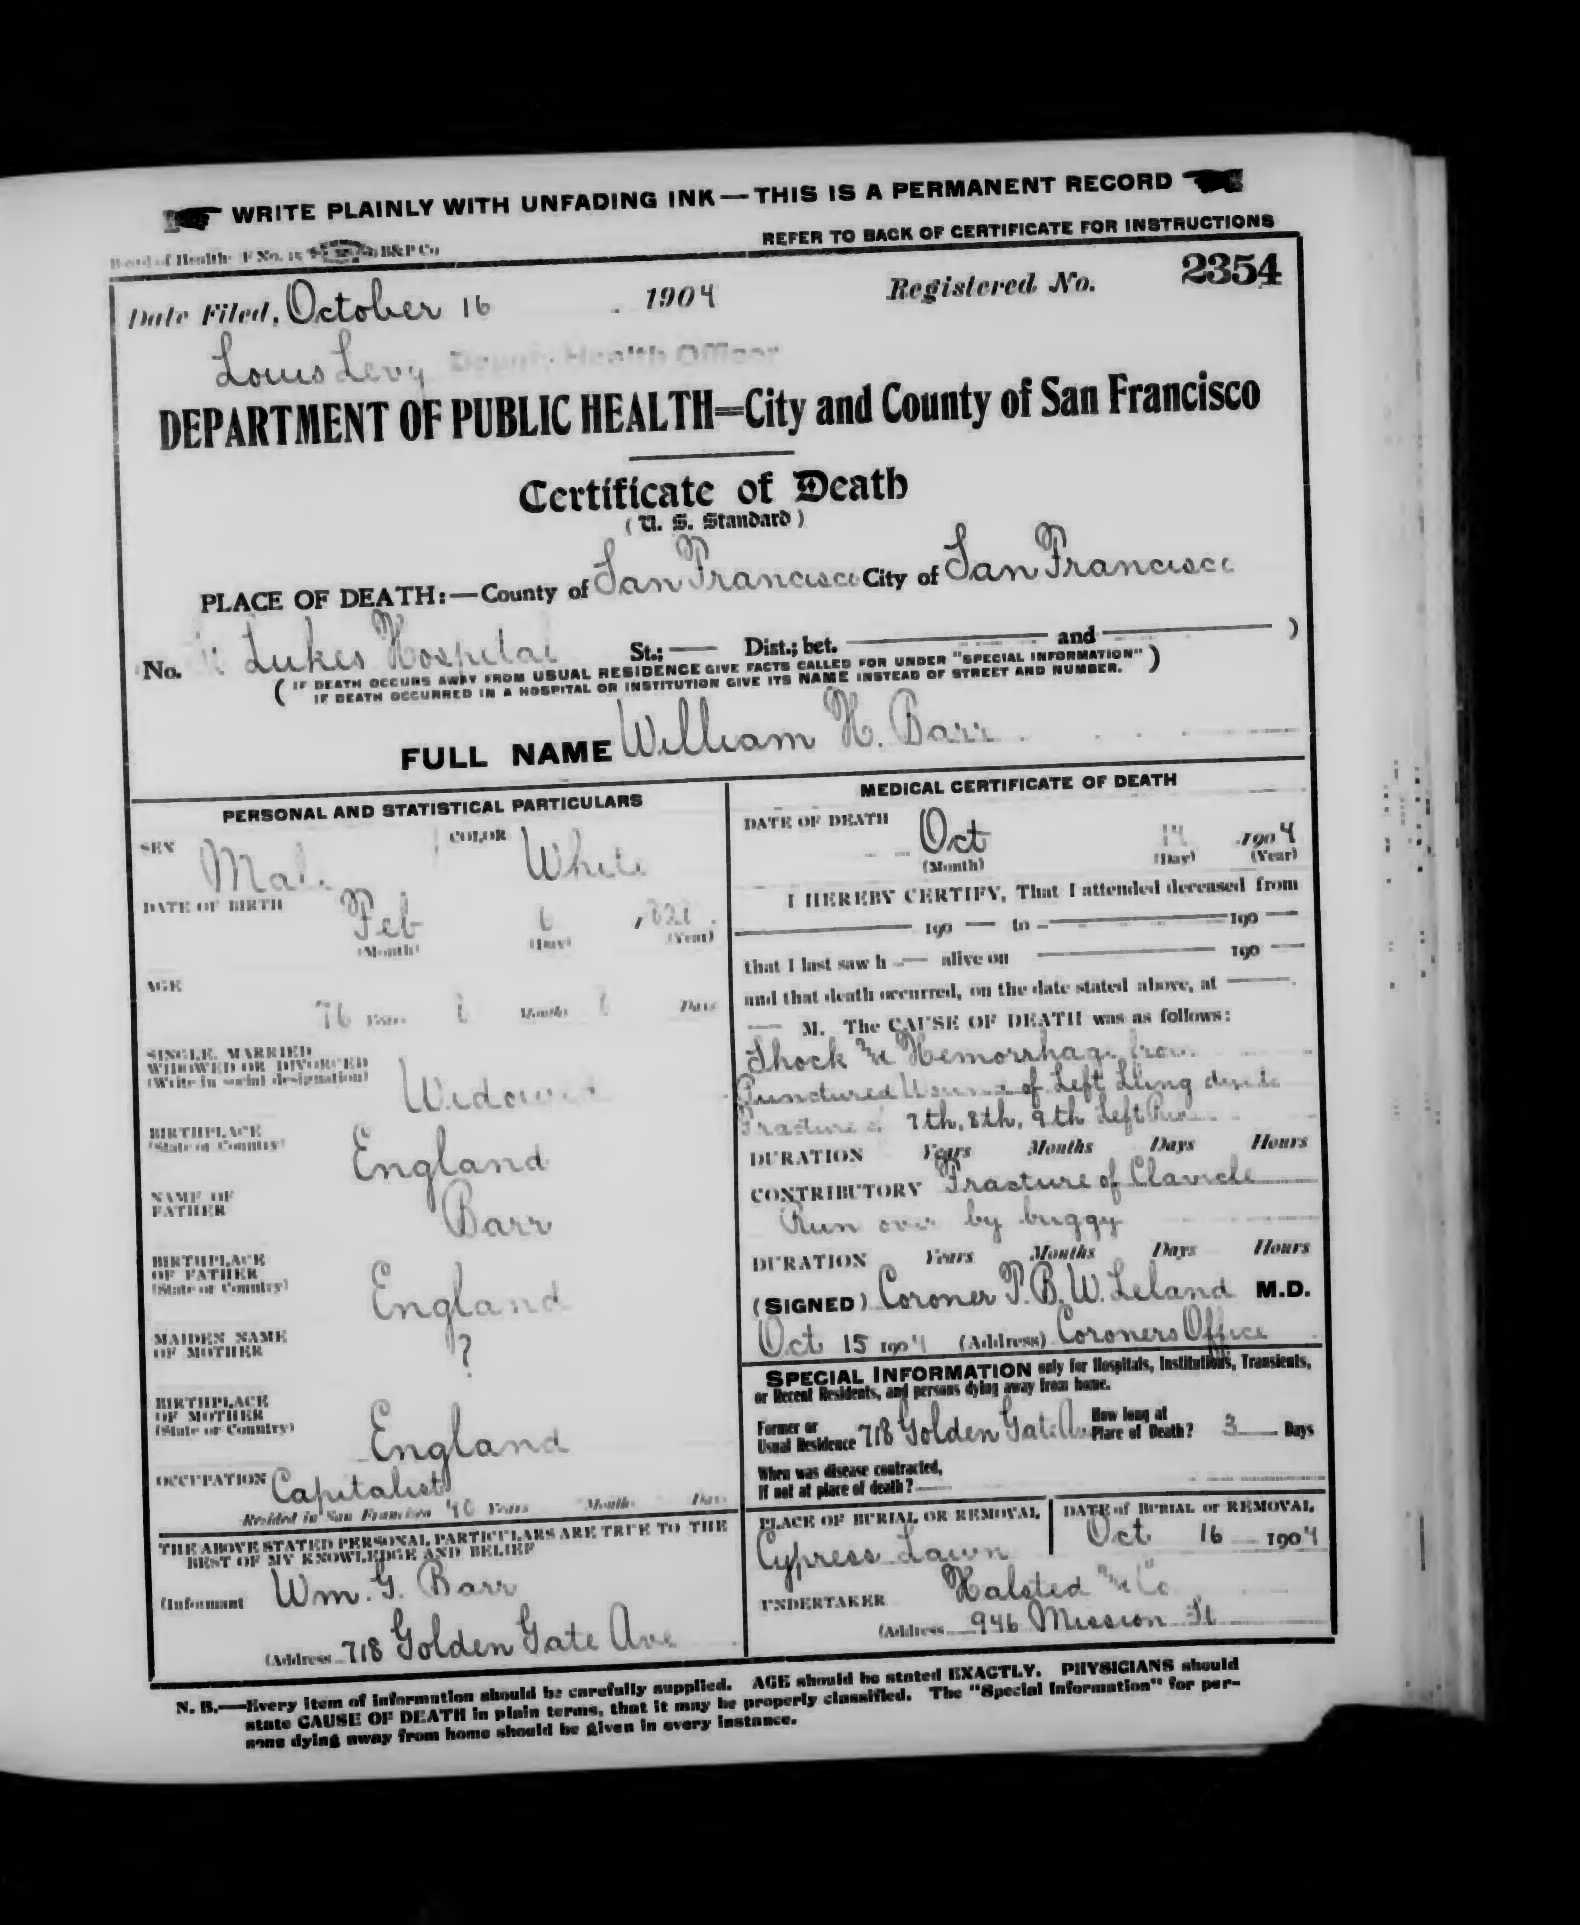 WRITE PLAINLY WITH UNFADING INK—THIS IS A PERMANENT RECORD
Board of Health: F No. 15 B&P Co.
REFER TO BACK OF CERTIFICATE FOR INSTRUCTIONS
Date Filed, October 16 1904 Registered No. 2354
Louis Levy Deputy Health Officer
DEPARTMENT OF PUBLIC HEALTH=City and County of San Francisco
Certificate of Death
(U. S. Standard)
PLACE OF DEATH:—County of San Francisco City of San Francisco
No. St Lukes Hospital St.; — Dist.; bet. — and — )
( IF DEATH OCCURS AWAY FROM USUAL RESIDENCE GIVE FACTS CALLED FOR UNDER "SPECIAL INFORMATION" )
IF DEATH OCCURRED IN A HOSPITAL OR INSTITUTION GIVE ITS NAME INSTEAD OF STREET AND NUMBER.
FULL NAME William H. Barr
PERSONAL AND STATISTICAL PARTICULARS
SEX Male COLOR White
DATE OF BIRTH Feb 6
(Month) (Day) (Year)
AGE
76 Years Months Days
SINGLE, MARRIED
WIDOWED OR DIVORCED
(Write in social designation) Widowed
BIRTHPLACE
(State or Country) England
NAME OF
FATHER Barr
BIRTHPLACE
OF FATHER
(State or Country) England
MAIDEN NAME
OF MOTHER ?
BIRTHPLACE
OF MOTHER
(State or Country) England
OCCUPATION Capitalist
Resided in San Francisco 40 Years Months Days
THE ABOVE STATED PERSONAL PARTICULARS ARE TRUE TO THE
BEST OF MY KNOWLEDGE AND BELIEF
(Informant Wm. G. Barr
(Address 718 Golden Gate Ave
MEDICAL CERTIFICATE OF DEATH
DATE OF DEATH Oct 14 1904
(Month) (Day) (Year)
I HEREBY CERTIFY, That I attended deceased from
— 190 — to — 190 —
that I last saw h — alive on — 190 —
and that death occurred, on the date stated above, at —
— M. The CAUSE OF DEATH was as follows:
Shock & Hemorrhage from
Punctured Wound of Left Lung due to
Fracture of 7th, 8th, 9th Left Ribs
DURATION Years Months Days Hours
CONTRIBUTORY Fracture of Clavicle
Run over by buggy
DURATION Years Months Days Hours
(SIGNED) Coroner T. B. W. Leland M.D.
Oct 15 1904 (Address) Coroners Office
SPECIAL INFORMATION only for Hospitals, Institutions, Transients,
or Recent Residents, and persons dying away from home.
Former or
Usual Residence 718 Golden Gate Av How long at
Place of Death? 3 Days
When was disease contracted,
If not at place of death? —
PLACE OF BURIAL OR REMOVAL DATE of BURIAL or REMOVAL
Cypress Lawn Oct 16 1904
UNDERTAKER Halsted & Co
(Address 946 Mission St
N. B.—Every item of information should be carefully supplied. AGE should be stated EXACTLY. PHYSICIANS should
state CAUSE OF DEATH in plain terms, that it may be properly classified. The "Special Information" for per-
sons dying away from home should be given in every instance.